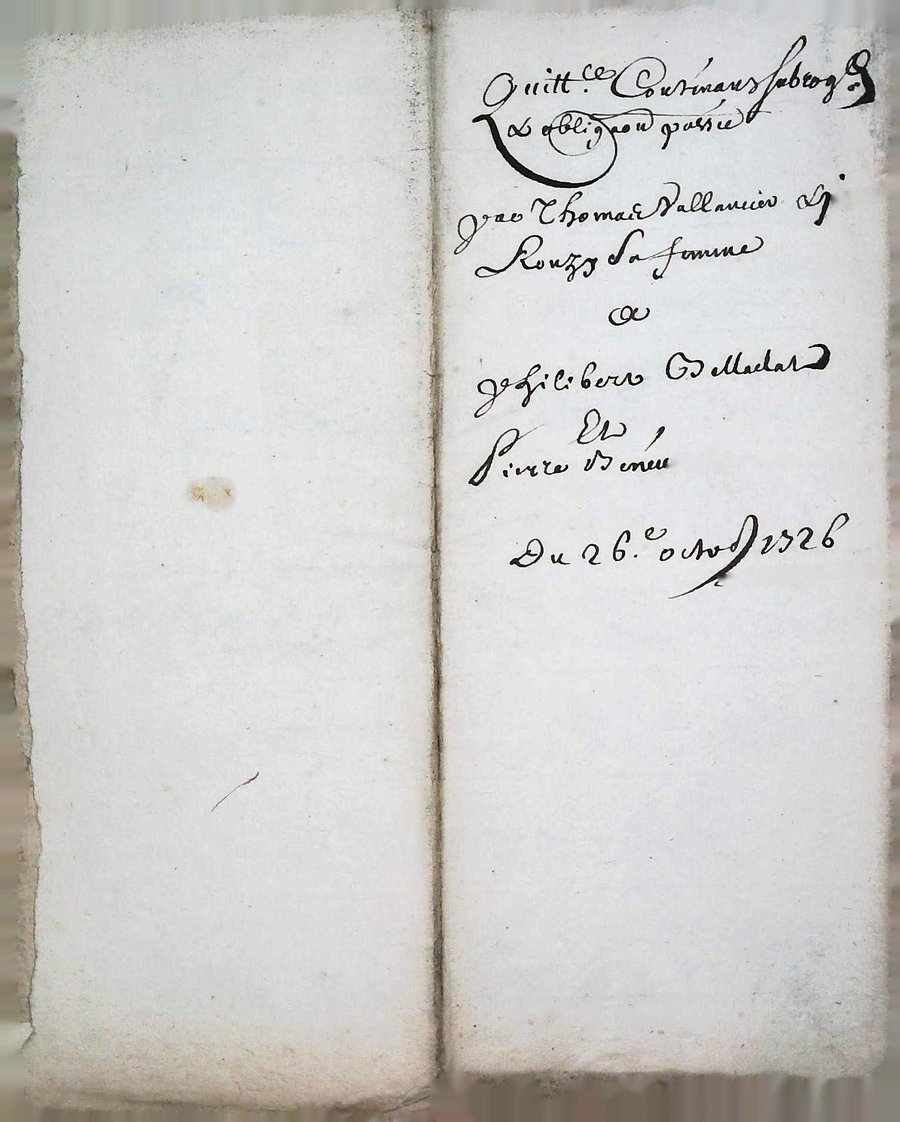 Quitt.ce Contenant subrog.on
& obligaon passée
par Thomas Vallancier &
Rouzy sa femme
a
Philibert Belladat
Et
Pierre Benéu
Du 26.e octob 1726